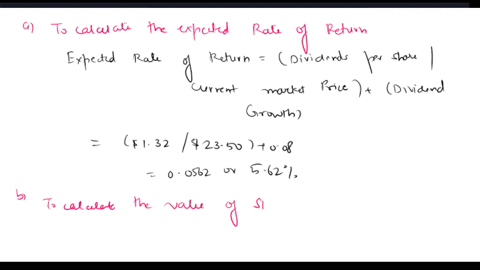 a) To calculate the expected Rate of Return
Expected Rate of Return = (Dividends per share /
Current market Price) + (Dividend
Growth)
= ($1.32 / $23.50) + 0.08
= 0.0562 or 5.62%
b) To calculate the value of